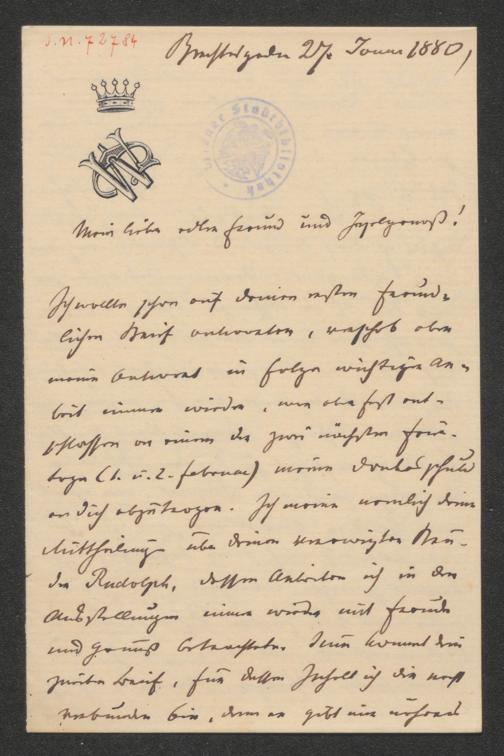 J.N. 72784
27. Januar 1880,
Wiener Stadtbibliothek
Mein lieber edler Freund und !
Ich wollte schon auf Deinen ersten freund-
lichen Brief antworten, verschob aber
meine Antwort in Folge wichtiger Ar-
beit immer wieder, war aber fest ent-
schlossen an einem der zwei nächsten Feier-
tage (1. u. 2. Februar) meine Dankesschuld
an Dich abzutragen. Ich meine nemlich Deine
Mittheilung über Deinen verewigten Bru-
der Rudolph, dessen Arbeiten ich in den
Ausstellungen immer wieder mit Freude
und Genuß betrachtete. Nun kommt Dein
zweiter Brief, für dessen Inhalt ich Dir
verbunden bin, denn er gibt mir